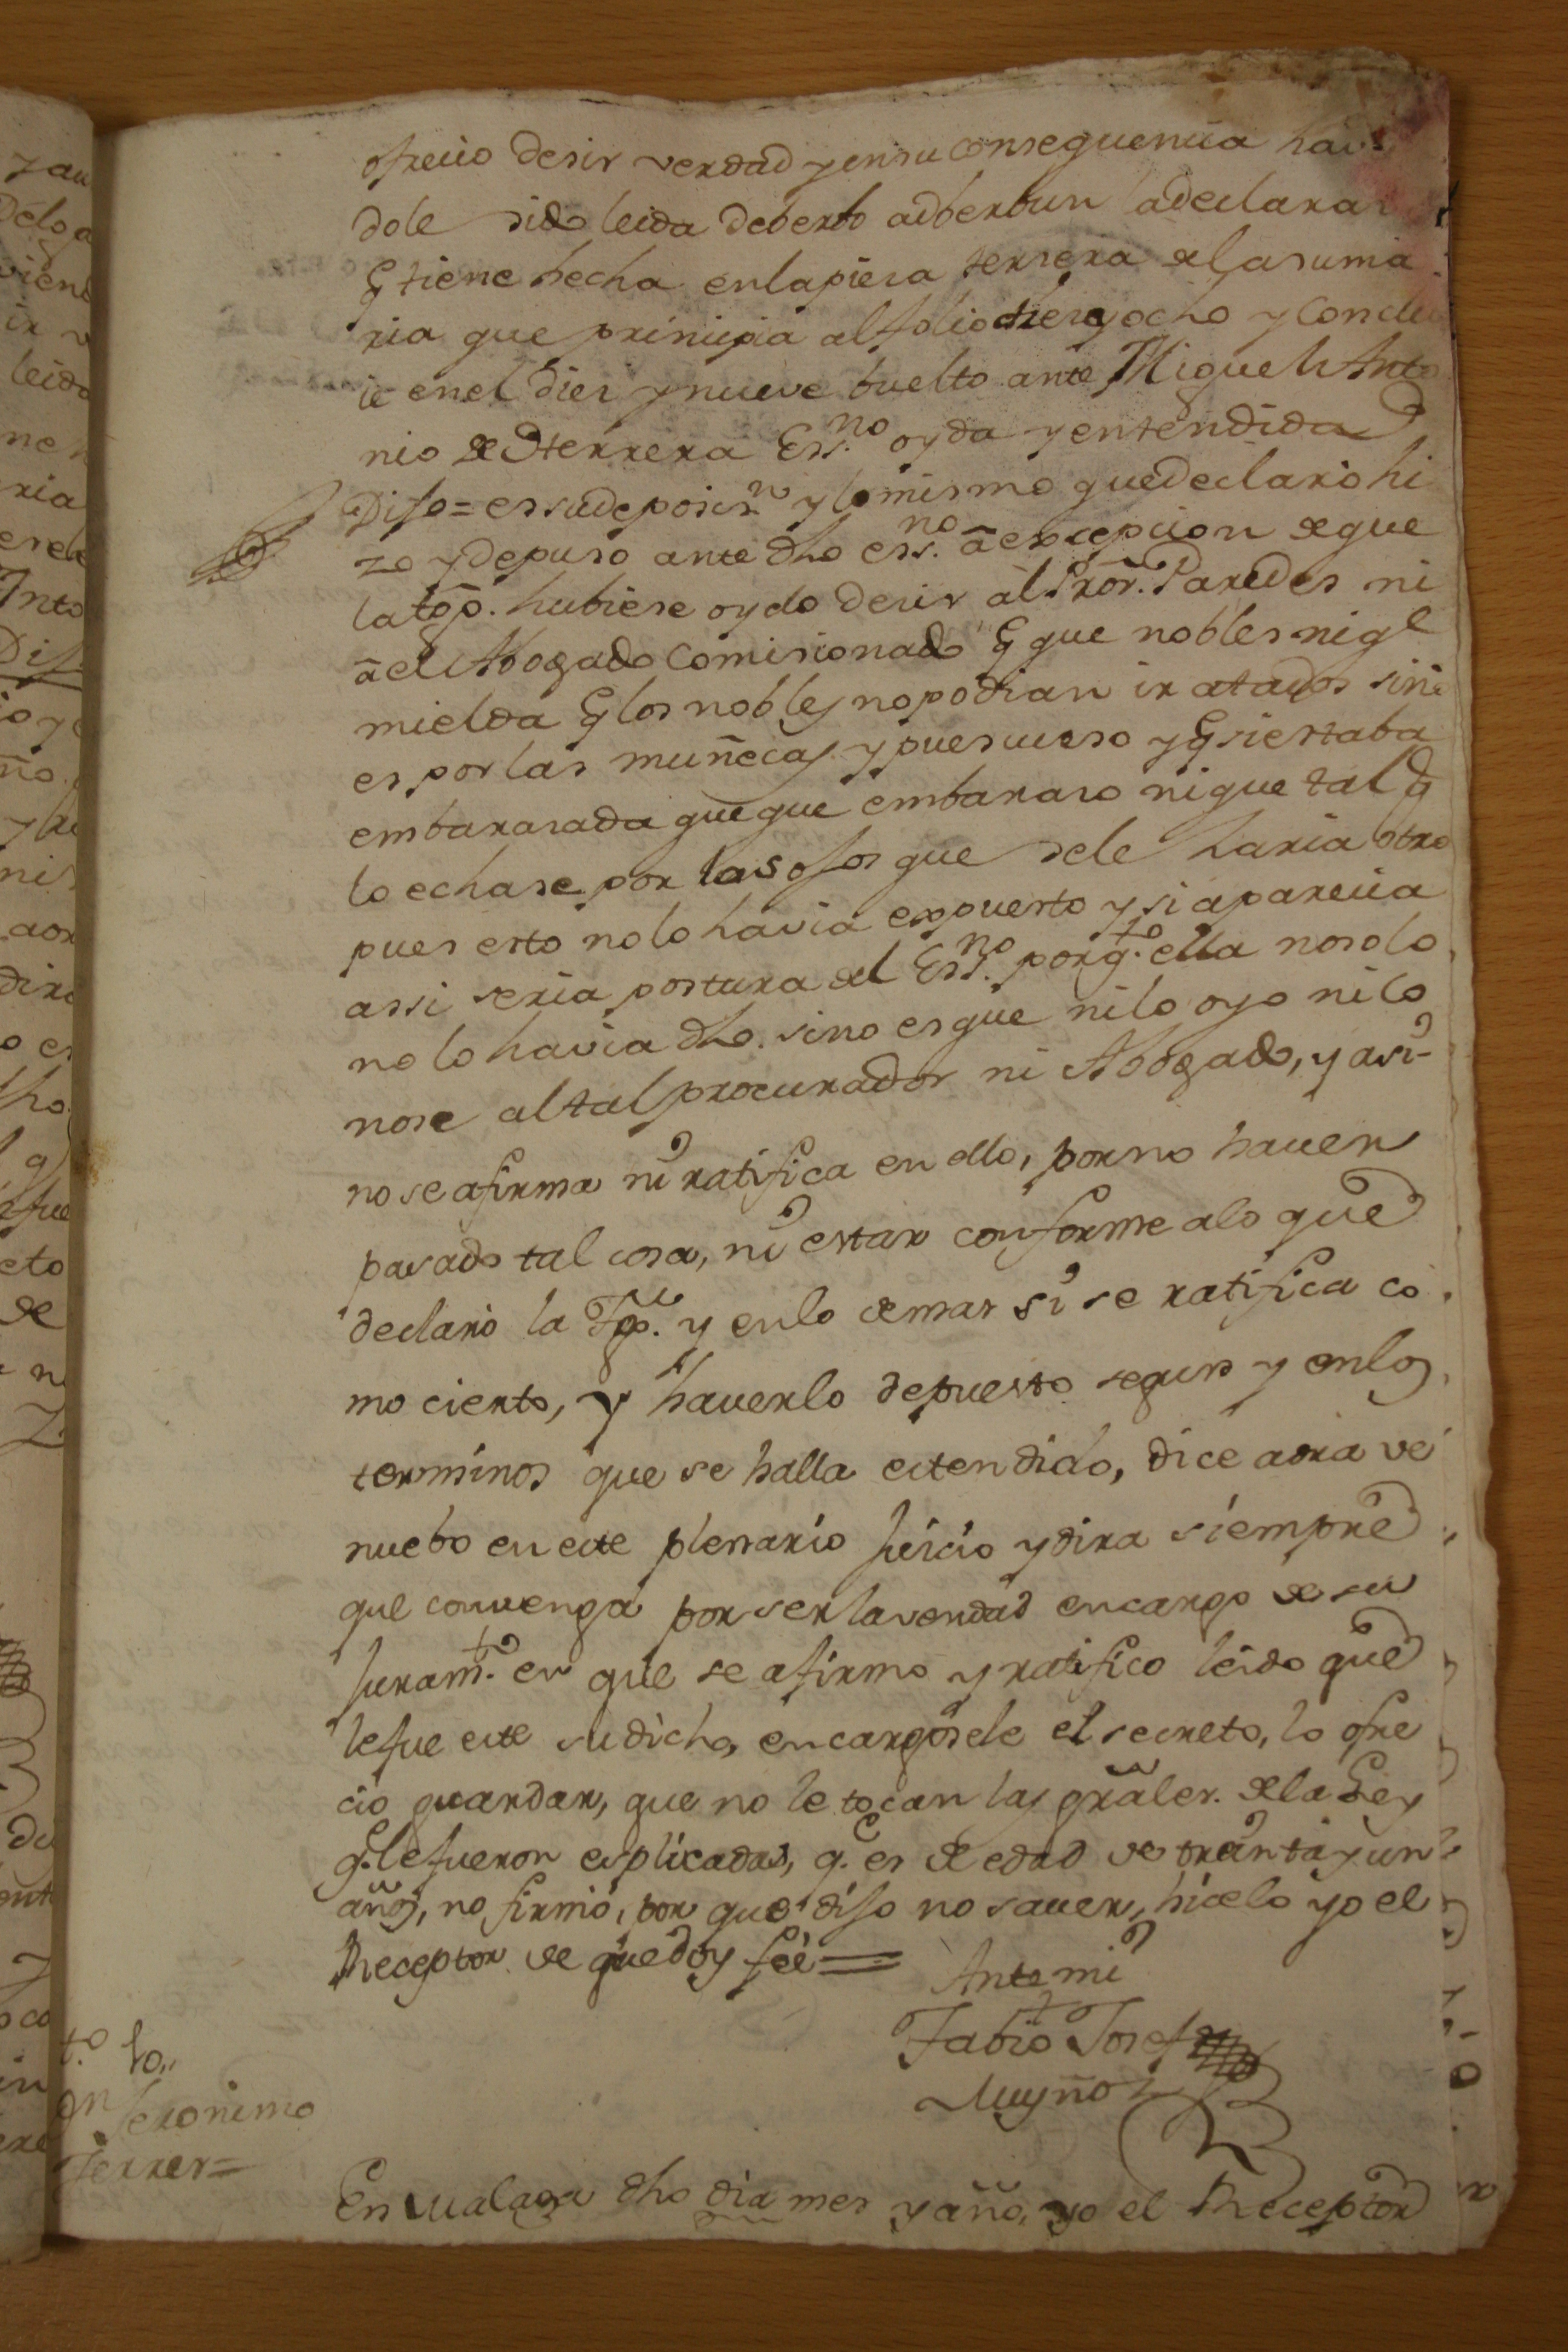 ofrecio desir verdad y en su consequencia havi
dole sido leida de berbo adberbun la declaraz
q tiene hecha en la piesa tersera de la suma
ria que principia al folio dies y ocho y conclu
ie en el dies y nueve buelto ante Miguel Anto
nio de Herrera Ess.no oyda y entendida
Dijo = es su deposiz.n y lo mismo que declaro hi
zo y depuso ante dho ess.no a excepcion de que
la top. hubiese oydo desir al Pror. Paredes ni
a el Abogado Comisionado q que nobles ni q.e
mielda q los nobles no podian ir atados sino
es por las muñecas y puescueso y q si estaba
embarasada que que embaraso ni que tal q
lo echase por los ojos que se le haria otro
pues esto no lo havia expuesto y si aparecia
assi seria postura del Ess.no porq.e ella no solo
no lo havia dho. sino es que ni lo oyo ni co
nose al tal procurador ni Abogado, y asi
no se afirma ni ratifica en ello, por no haver
pasado tal cosa, ni estar conforme a lo que
declaro la Tgo. y en lo demas si se ratifica co
mo cierto, y haverlo depuesto segun y en los
terminos que se halla estendido, dice aora de
nuebo en este plenario Juicio y dira siempre
que convenga por ser la verdad en cargo de su
Juram.to en que se afirmo y ratifico leido que
le fue este su dicho, encargosele el secreto, lo ofre
cio guardar, que no le tocan las grãles. de la Ley
q. le fueron esplicadas, q. es de edad de treinta y un
años, no firmó, por que dijo no saver, hicelo yo el
Receptor de que doy feé =
Ante mi
Fabio Josef
Muñoz
t.o 10,,
Dn Jeronimo
Ferrer =
En Malaga dho dia mes y año, yo el Receptor